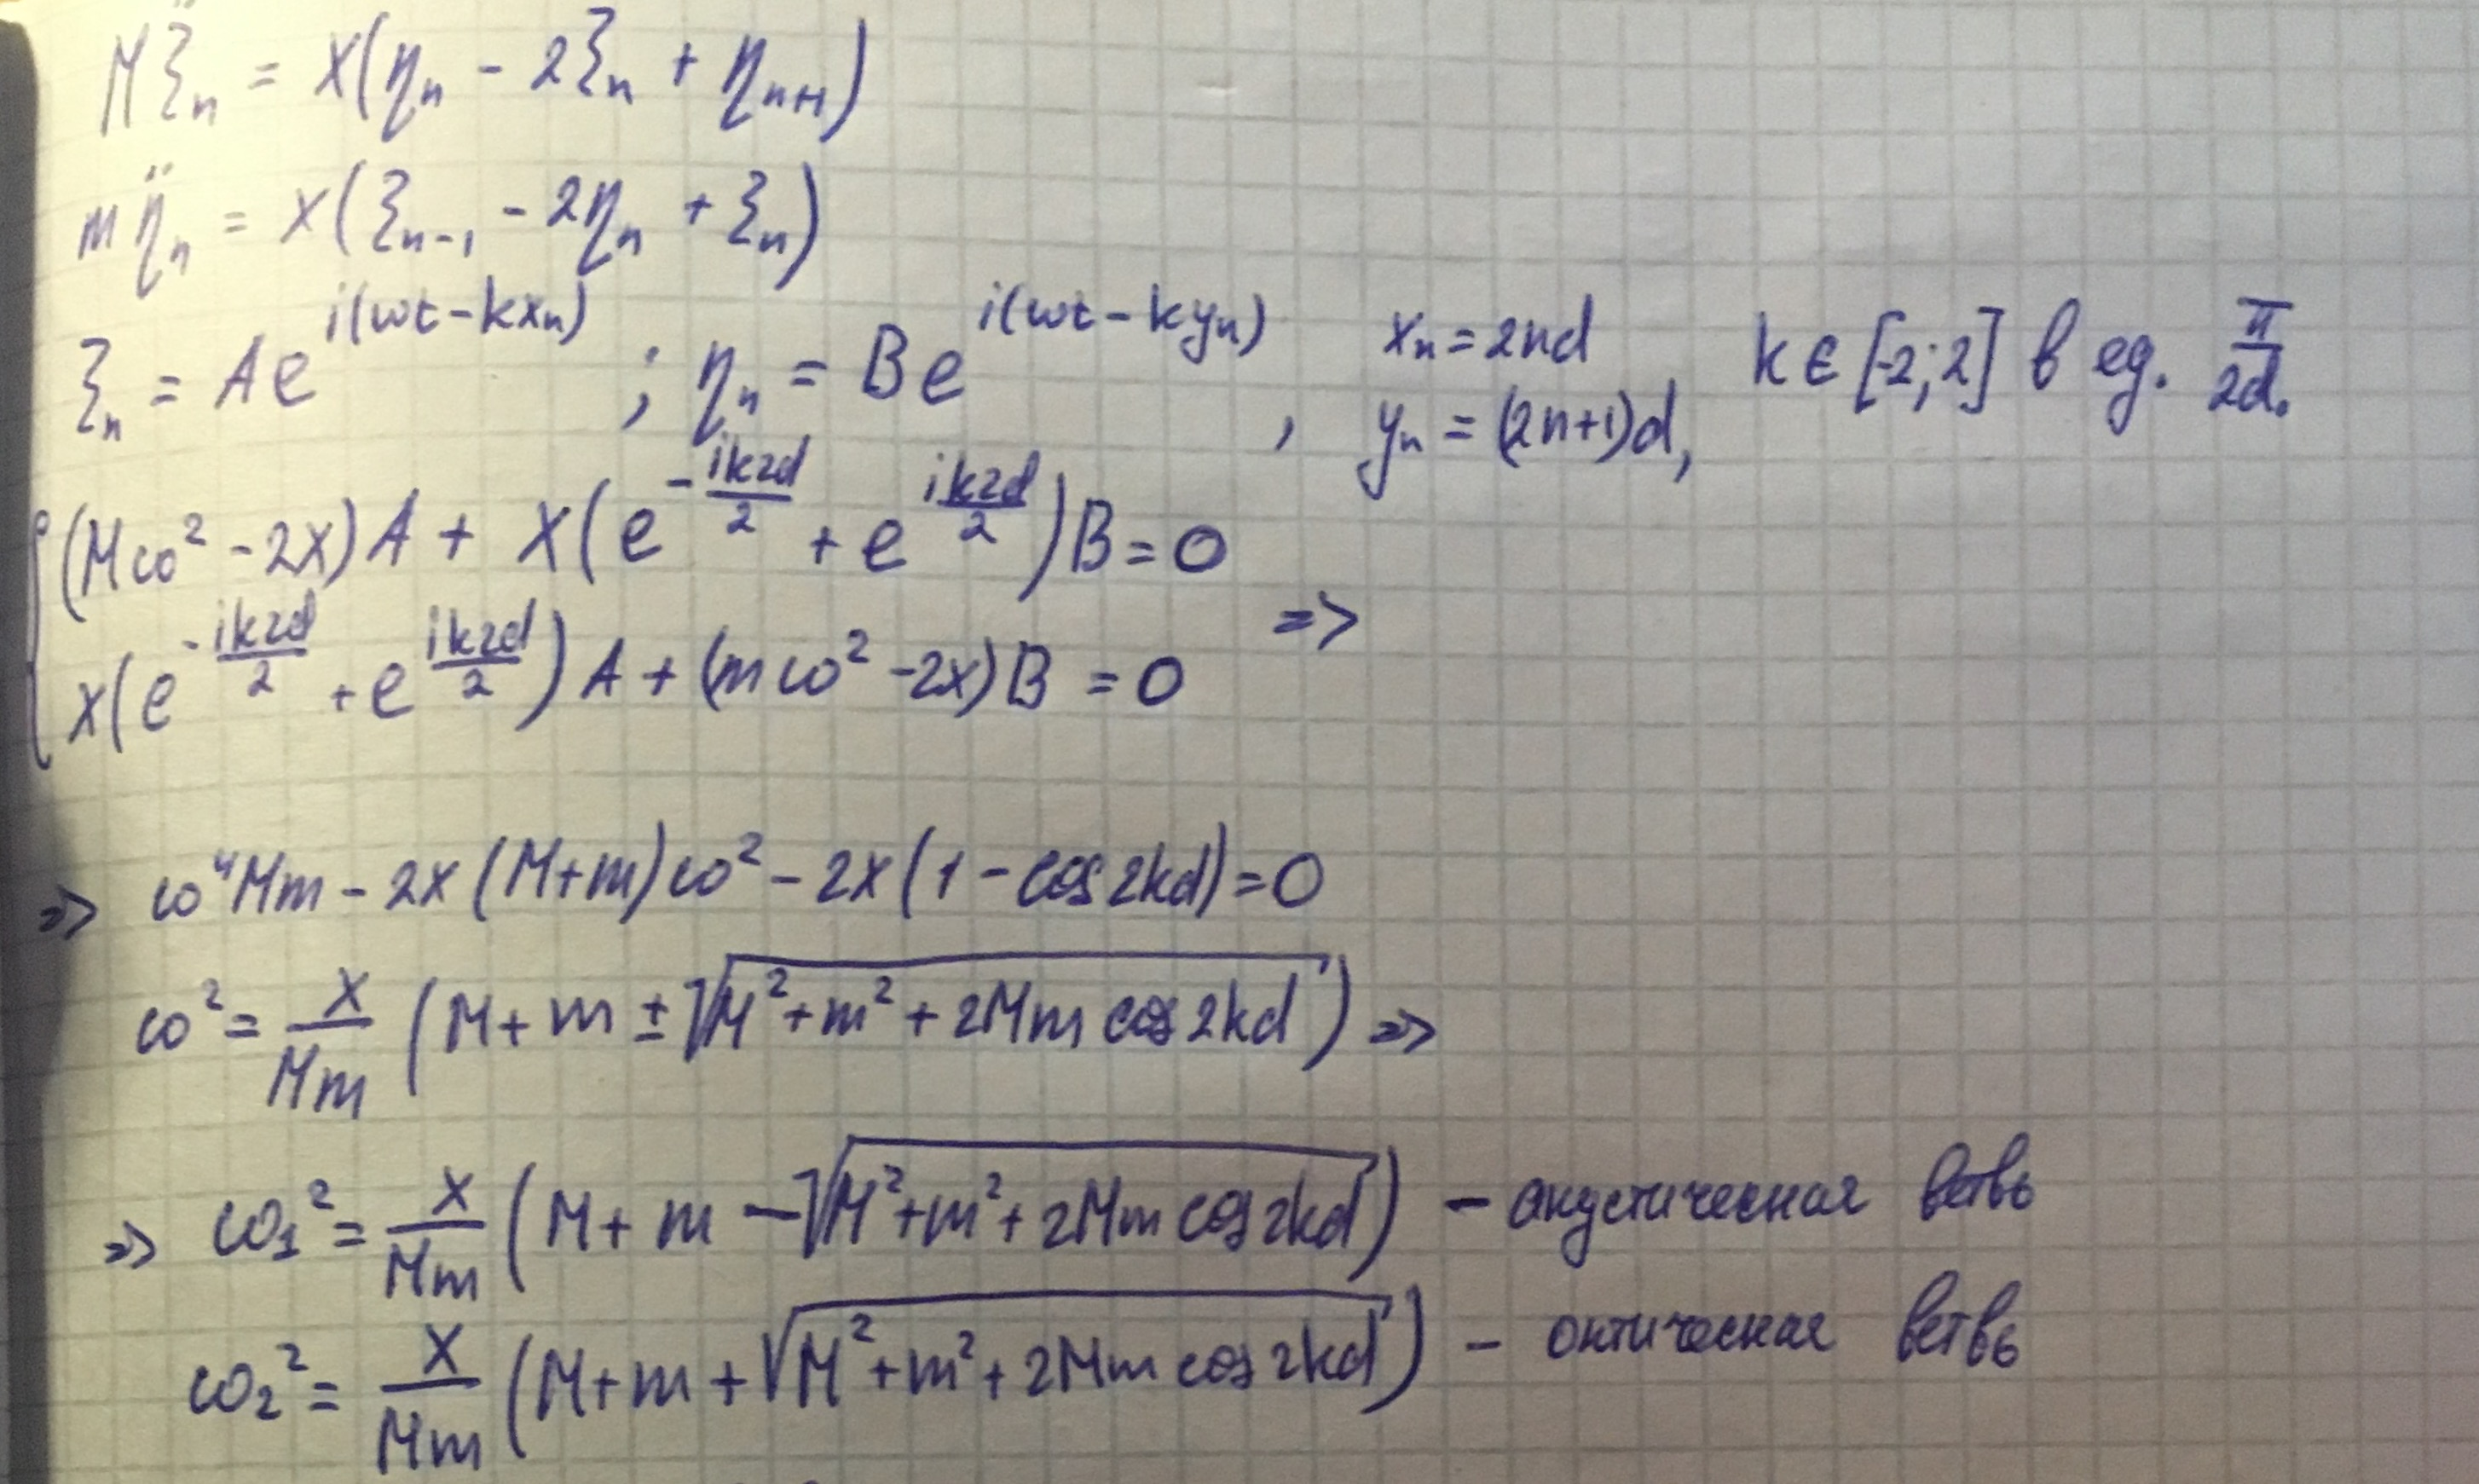 Mξ̈ₙ = x(ηₙ - 2ξₙ + ηₙ₊₁)
mη̈ₙ = x(ξₙ₋₁ - 2ηₙ + ξₙ)
ξₙ = Ae^{i(ωt-kxₙ)} ; ηₙ = Be^{i(ωt-kyₙ)} , xₙ = 2nd
yₙ = (2n+1)d, k∈[-2;2] в ед. π/2d.
{(Mω² - 2x)A + x(e^{-ik2d/2} + e^{ik2d/2})B = 0
x(e^{-ik2d/2} + e^{ik2d/2})A + (mω² - 2x)B = 0 =>
=> ω⁴Mm - 2x(M+m)ω² - 2x(1 - cos2kd) = 0
ω² = x/Mm (M + m ± √(M² + m² + 2Mm cos2kd)) =>
=> ω₁² = x/Mm (M + m - √(M² + m² + 2Mm cos2kd)) - акустическая ветвь
ω₂² = x/Mm (M + m + √(M² + m² + 2Mm cos2kd)) - оптическая ветвь